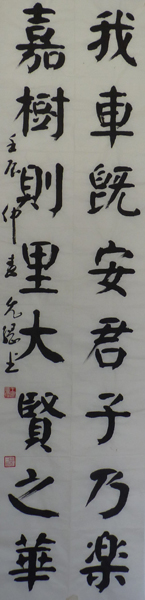 我車既安君子乃楽
嘉樹則里大賢之華
壬辰仲春